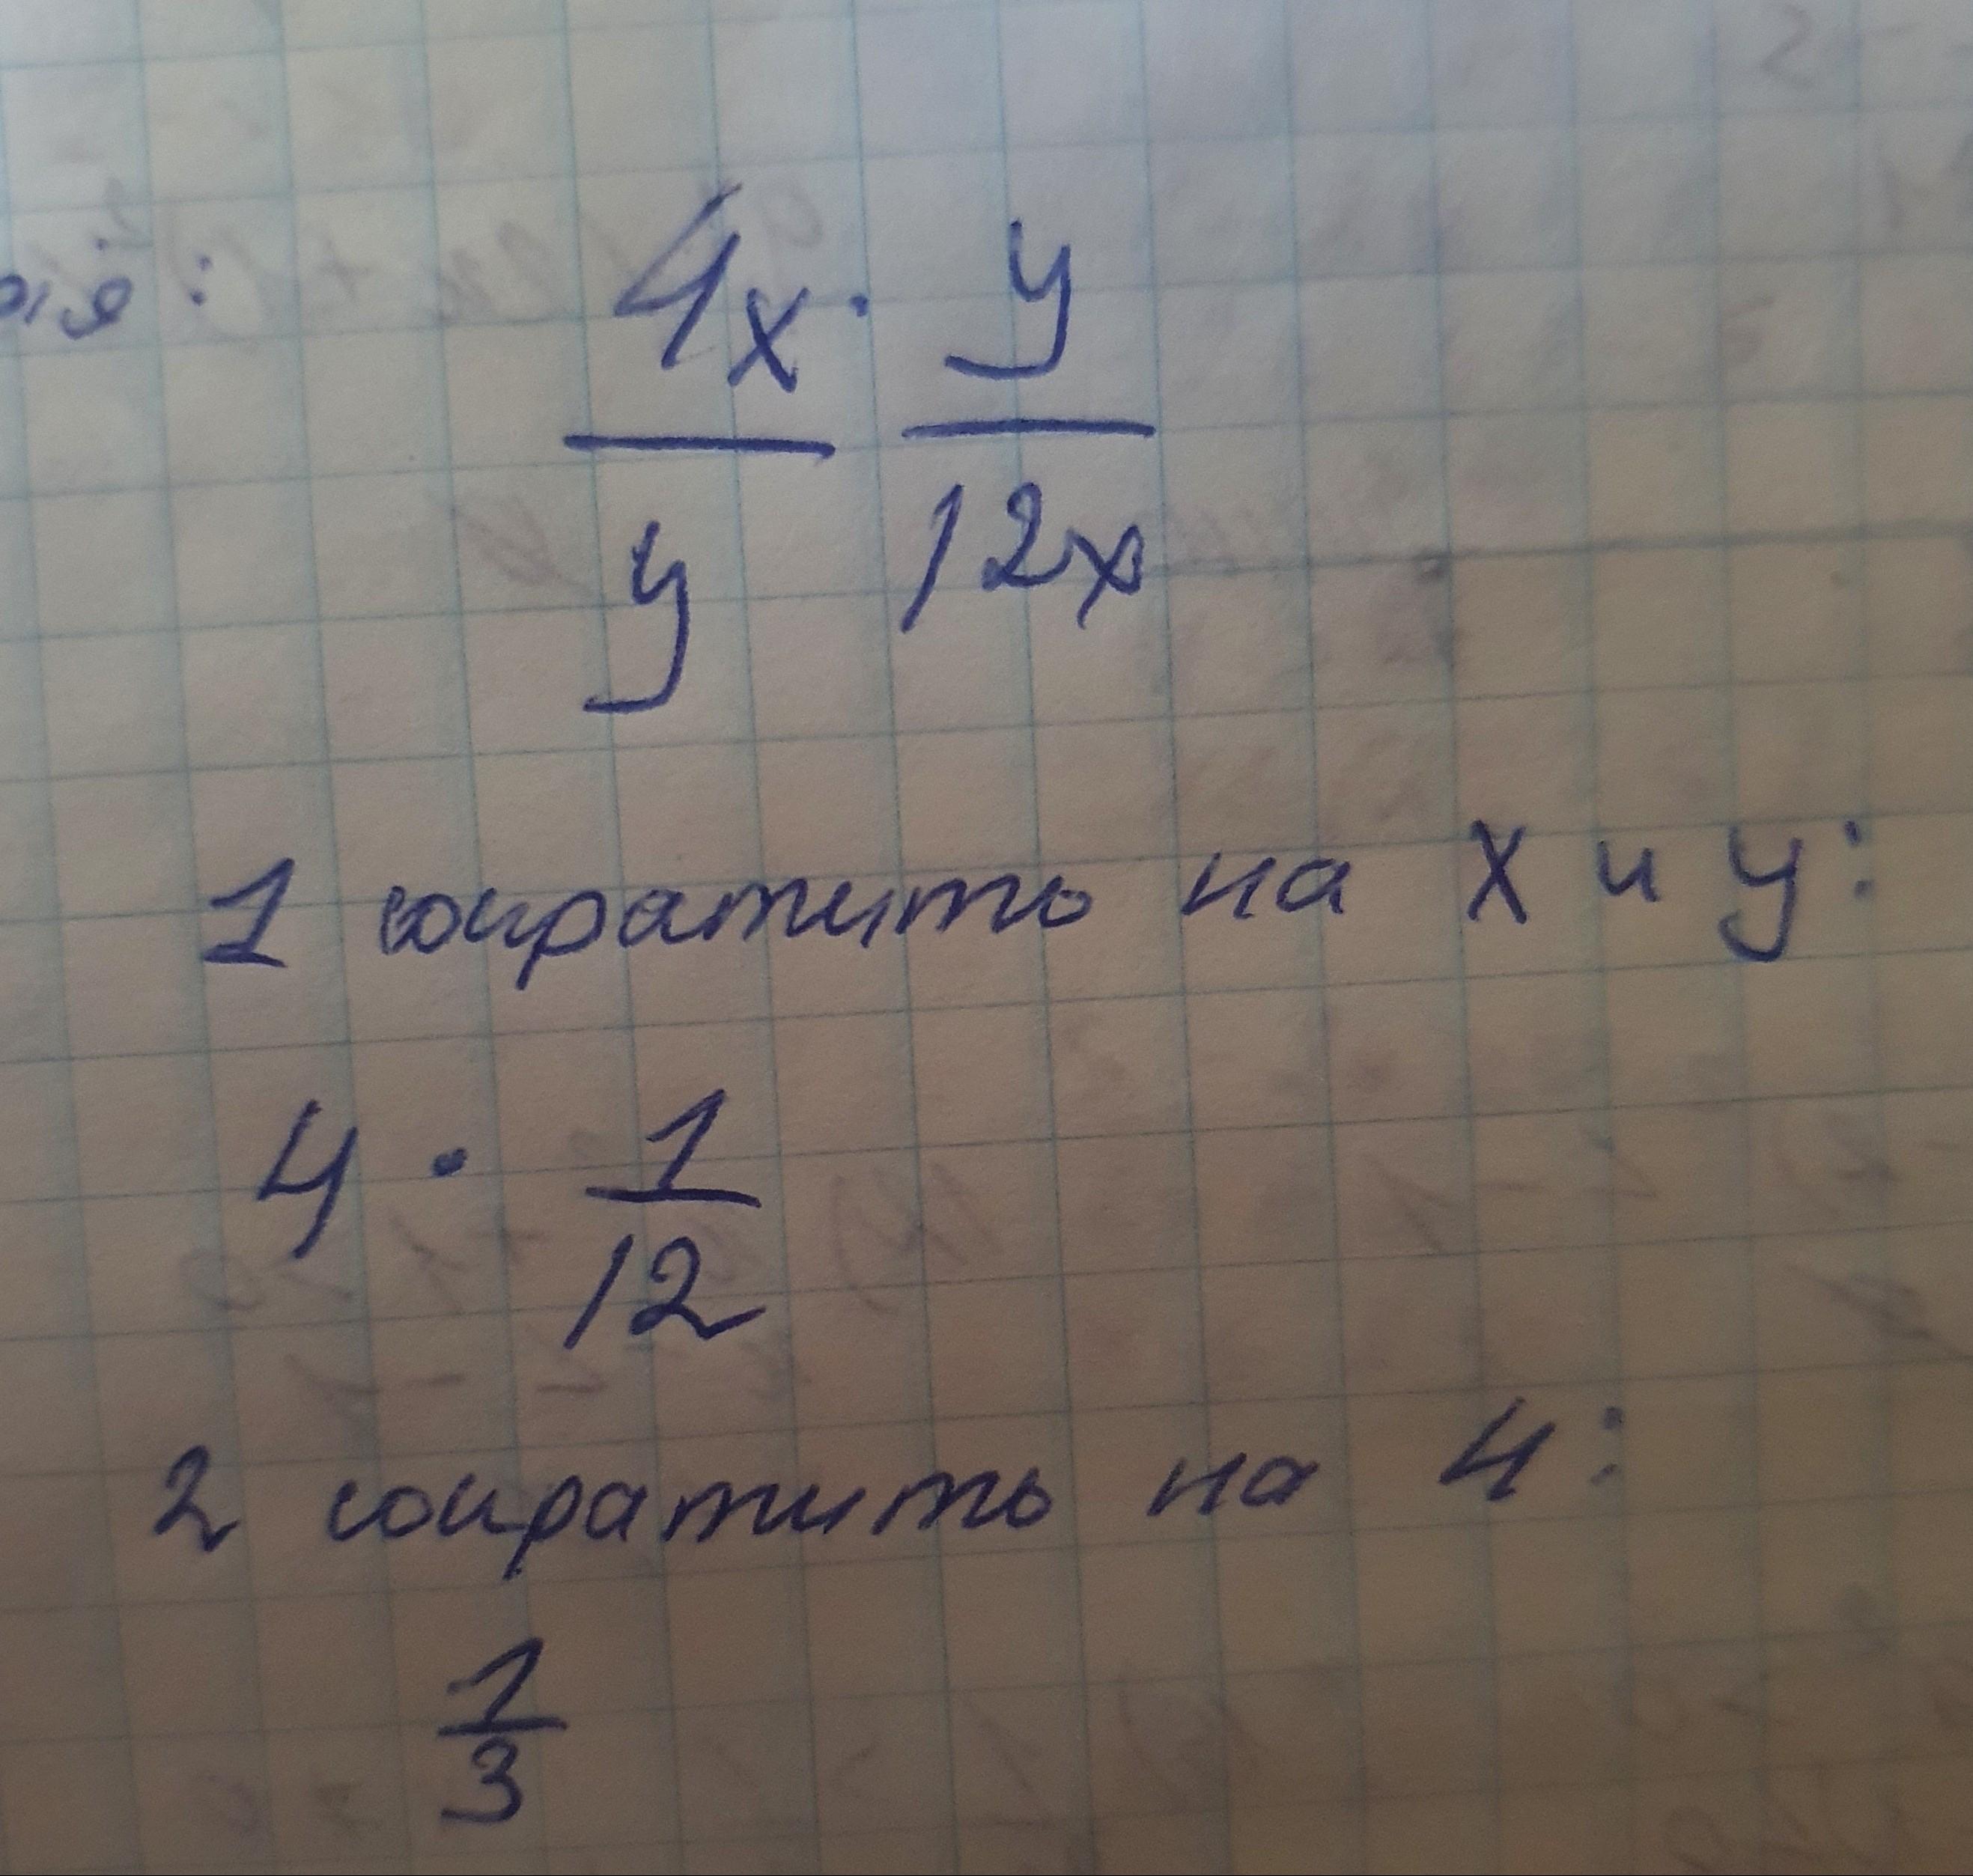 4x · y
y 12x
1 сократить на x и y:
4 · 1
12
2 сократить на 4:
1
3